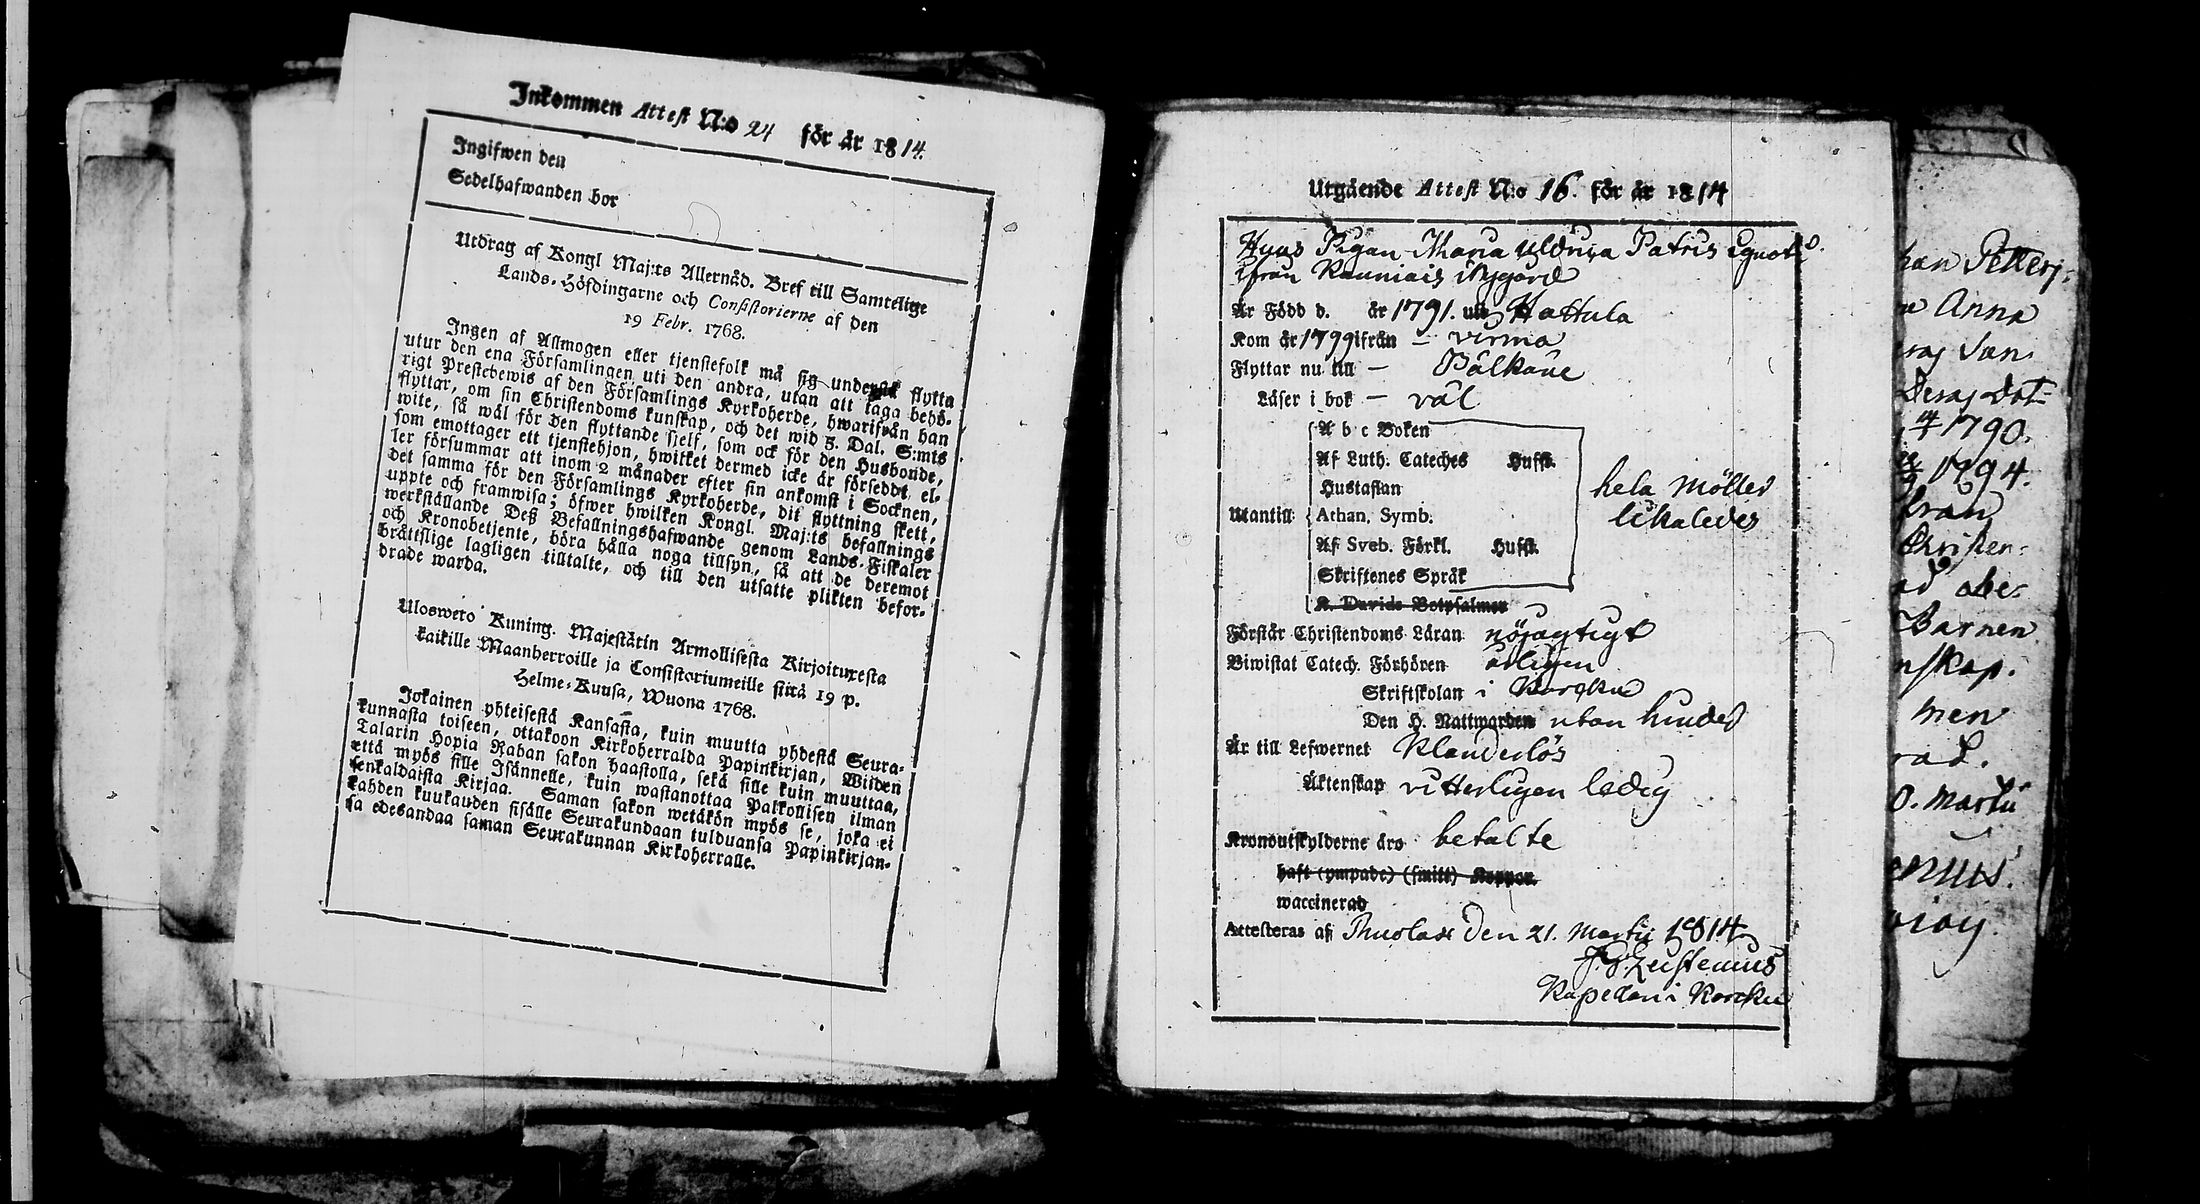 Inkommen Attest N:o 24 för år 1814.
Ingifwen den
Sedelhafwanden bor
Utdrag af Kongl Maj:ts Allernåd. Bref till Samtelige
Lands-Höfdingarne och Consistorierne af den
19 Febr. 1768.
Ingen af Allmogen eller tjenstefolk må sig flytta
utur den ena Församlingen uti den andra, utan att taga behö-
rigt Prestebewis af den Församlings Kyrkoherde, hwarifrån han
flyttar, om sin Christendoms kunskap, och det wid 3. Dal. S:mts
wite, så wäl för den flyttande sjelf, som ock för den Husbonde,
som emottager ett tjenstehjon, hwilket dermed icke är försedt, el-
ler försummar att inom 2 månader efter sin ankomst i Socknen,
det samma för den Församlings Kyrkoherde, dit flyttning skett,
uppte och framwisa; öfwer hwilken Kongl. Maj:ts befallnings
werkställande Deß Befallningshafwande genom Lands-Fiskaler
och Kronobetjente, böra hålla noga tillsyn, så att de deremot
bråttslige lagligen tilltalte, och till den utsatte plikten befor-
drade warda.
Ulosweto Kuning. Majestätin Armollisesta Kirjoituxesta
kaikille Maanherroille ja Consistoriumeille siitä 19 p.
Helme-Kuusa, Wuona 1768.
Jokainen yhteisestä Kansasta, kuin muutta yhdestä Seura-
kunnasta toiseen, ottakoon Kirkoherralda Papinkirjan, Wiiden
Talarin Hopia Rahan sakon haastolla, sekä sille kuin muuttaa,
että myös sille Isännelle, kuin wastanottaa Palkollisen ilman
senkaldaista Kirjaa. Saman sakon wetäkön myös se, joka ei
kahden kuukauden sisälle Seurakundaan tulduansa Papinkirjan-
sa edesandaa saman Seurakunnan Kirkoherralle.
Utgående Attest N:o 16. för år 1814
Pigan Maria Ulrica Patris ignoti
ifrån Kauniais
Är Född d. år 1791. uti Hattula
Kom år 1799 ifrån - Virmo
Flyttar nu till - Pälkäne
Läser i bok - väl
A b c Boken
Af Luth. Cateches Hufst.
Hustaflan
hela Möller
Utantill Athan. Symb.
likaledes
Af Sveb. Förkl. Hufst.
Skriftenes Språk
K. Davids Botpsalmer
Förstår Christendoms Läran nöjagtigt
Biwistat Catech. Förhören årligen
Skriftskolan i
Den H. Nattwarden utan hinder
Är till Lefwernet Klanderlös
Äktenskap vitterligen ledig
Kronoutskylderne äro betalte
haft (ympade) (smitt) Koppor.
waccinerad
Attesteras af den 21. Martii 1814
Kapellan i
Anna
1790.
1794.
ifrån
Barnen
men
Martii